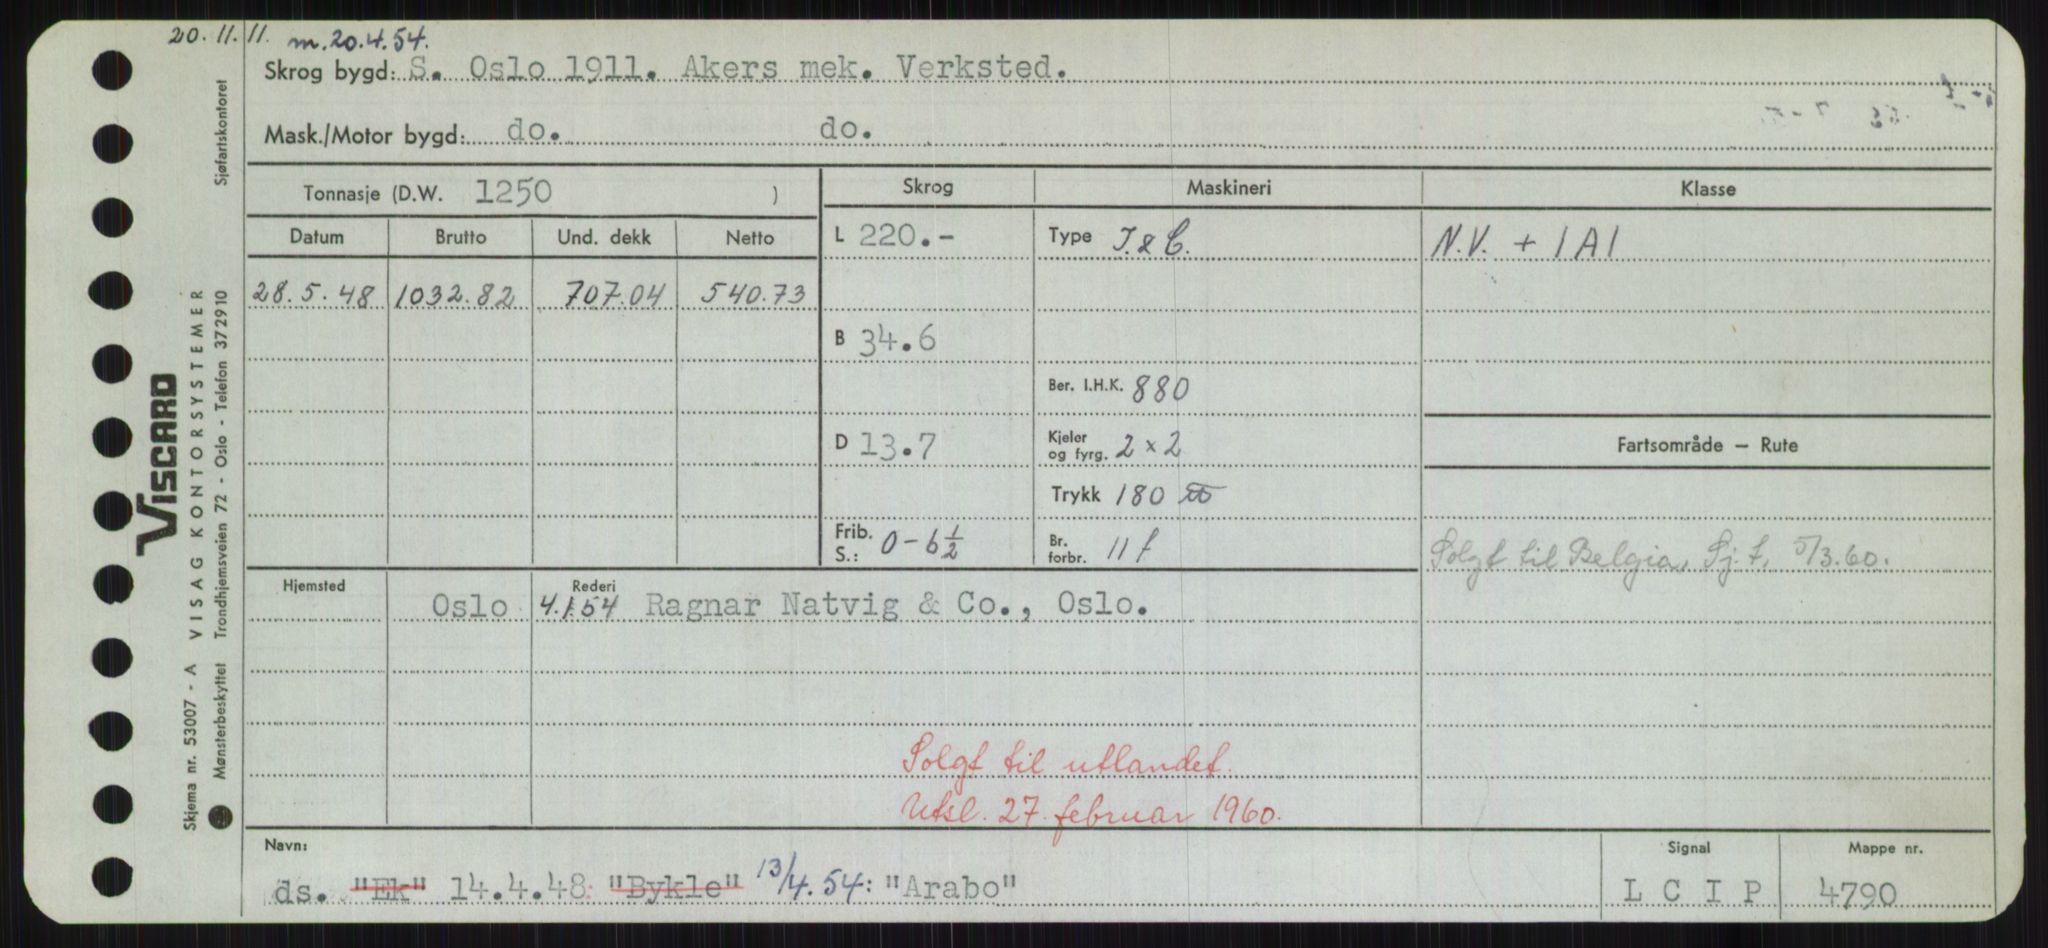 20.11.11. m.20.4.54.
Skrog bygd: S. Oslo 1911. Akers mek. Verksted.
Mask./Motor bygd: do. do.
Tonnasje (D.W. 1250 )
Skrog Maskineri Klasse
Datum Brutto Und. dekk Netto
L 220.- Type T.&C. N.V. + 1A1
28.5.48 1032.82 707.04 540.73
B 34.6
Ber. I.H.K. 880
D 13.7 Kjeler og fyrg. 2 x 2 Fartsområde — Rute
Trykk 180 ℔
Frib. S.: 0-6½ Br. forbr. 11 t
Solgt til Belgia, Sj.t. 5/3.60.
Hjemsted Rederi
Oslo 4.1.54 Ragnar Natvig & Co., Oslo.
Solgt til utlandet.
Utsl. 27. februar 1960.
Navn: Signal Mappe nr.
ds. "Ek" 14.4.48 "Bykle" 13/4.54: "Arabo" L C I P 4790
VISCARD
VISAG KONTORSYSTEMER
Skjema nr. 53007 - A
Mønsterbeskyttet Trondhjemsveien 72 - Oslo - Telefon 372910 Sjøfartskontoret